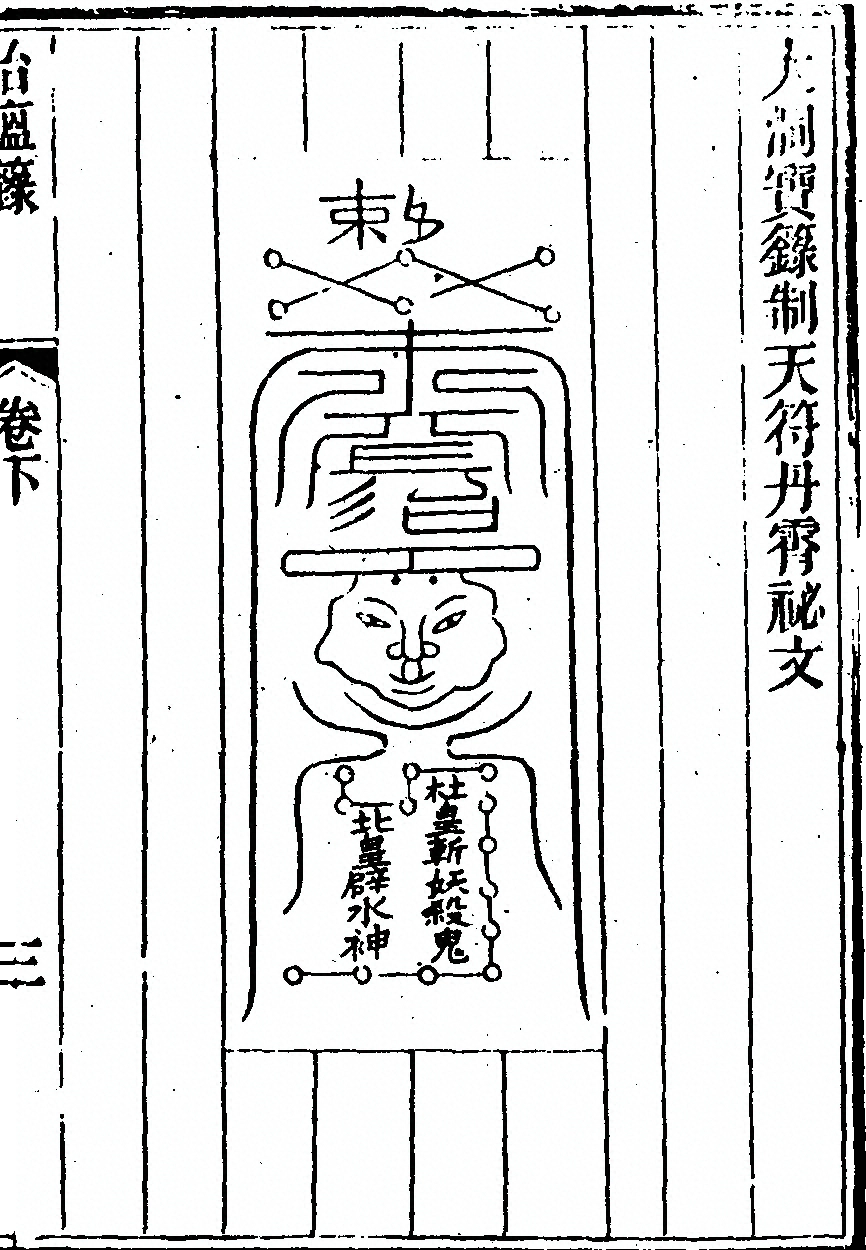 大洞寶籙制天符丹霄祕文
勅
杜皇斬妖殺鬼
北皇辟水神
卷下